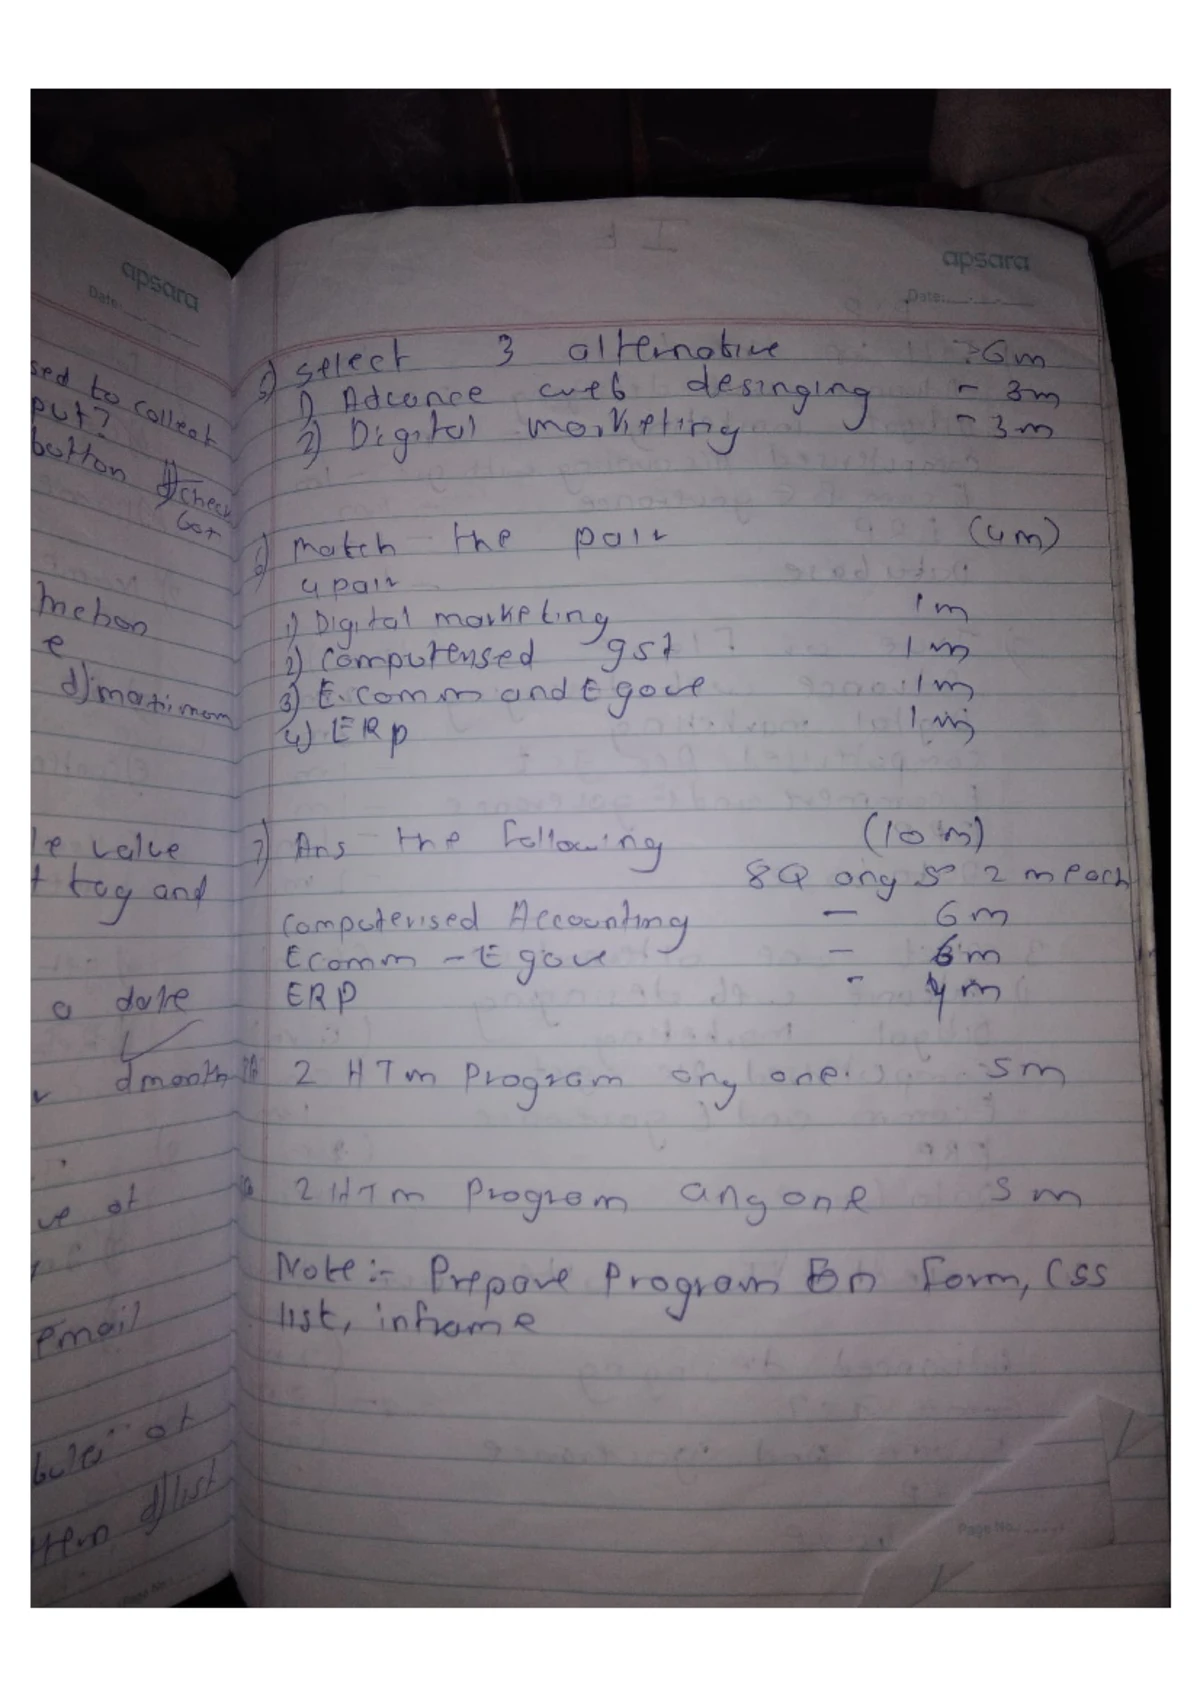 apsara
Date:
sed to collect
put?
button
check
box
e
d) maximom
le value
t tag and
a date
d month
ve at
email
at
d) list
apsara
Date:
5) select 3 alternative 6m
1) Advance web desinging - 3m
2) Digital marketing - 3m
6) match the pair (4m)
4 pair
1) Digital marketing 1m
2) Computerised gst 1m
3) E.comm and E gove 1m
4) ERp 1m
7) Ans the following (10 m)
8Q any 5 2 m each
Computerised Accounting - 6m
Ecomm - E gove - 6m
ERP - 4m
2 HTm Program any one. 5m
2 HTm Program any one 5m
Note :- Prepare Program on Form, Css
list, inframe
Page No.